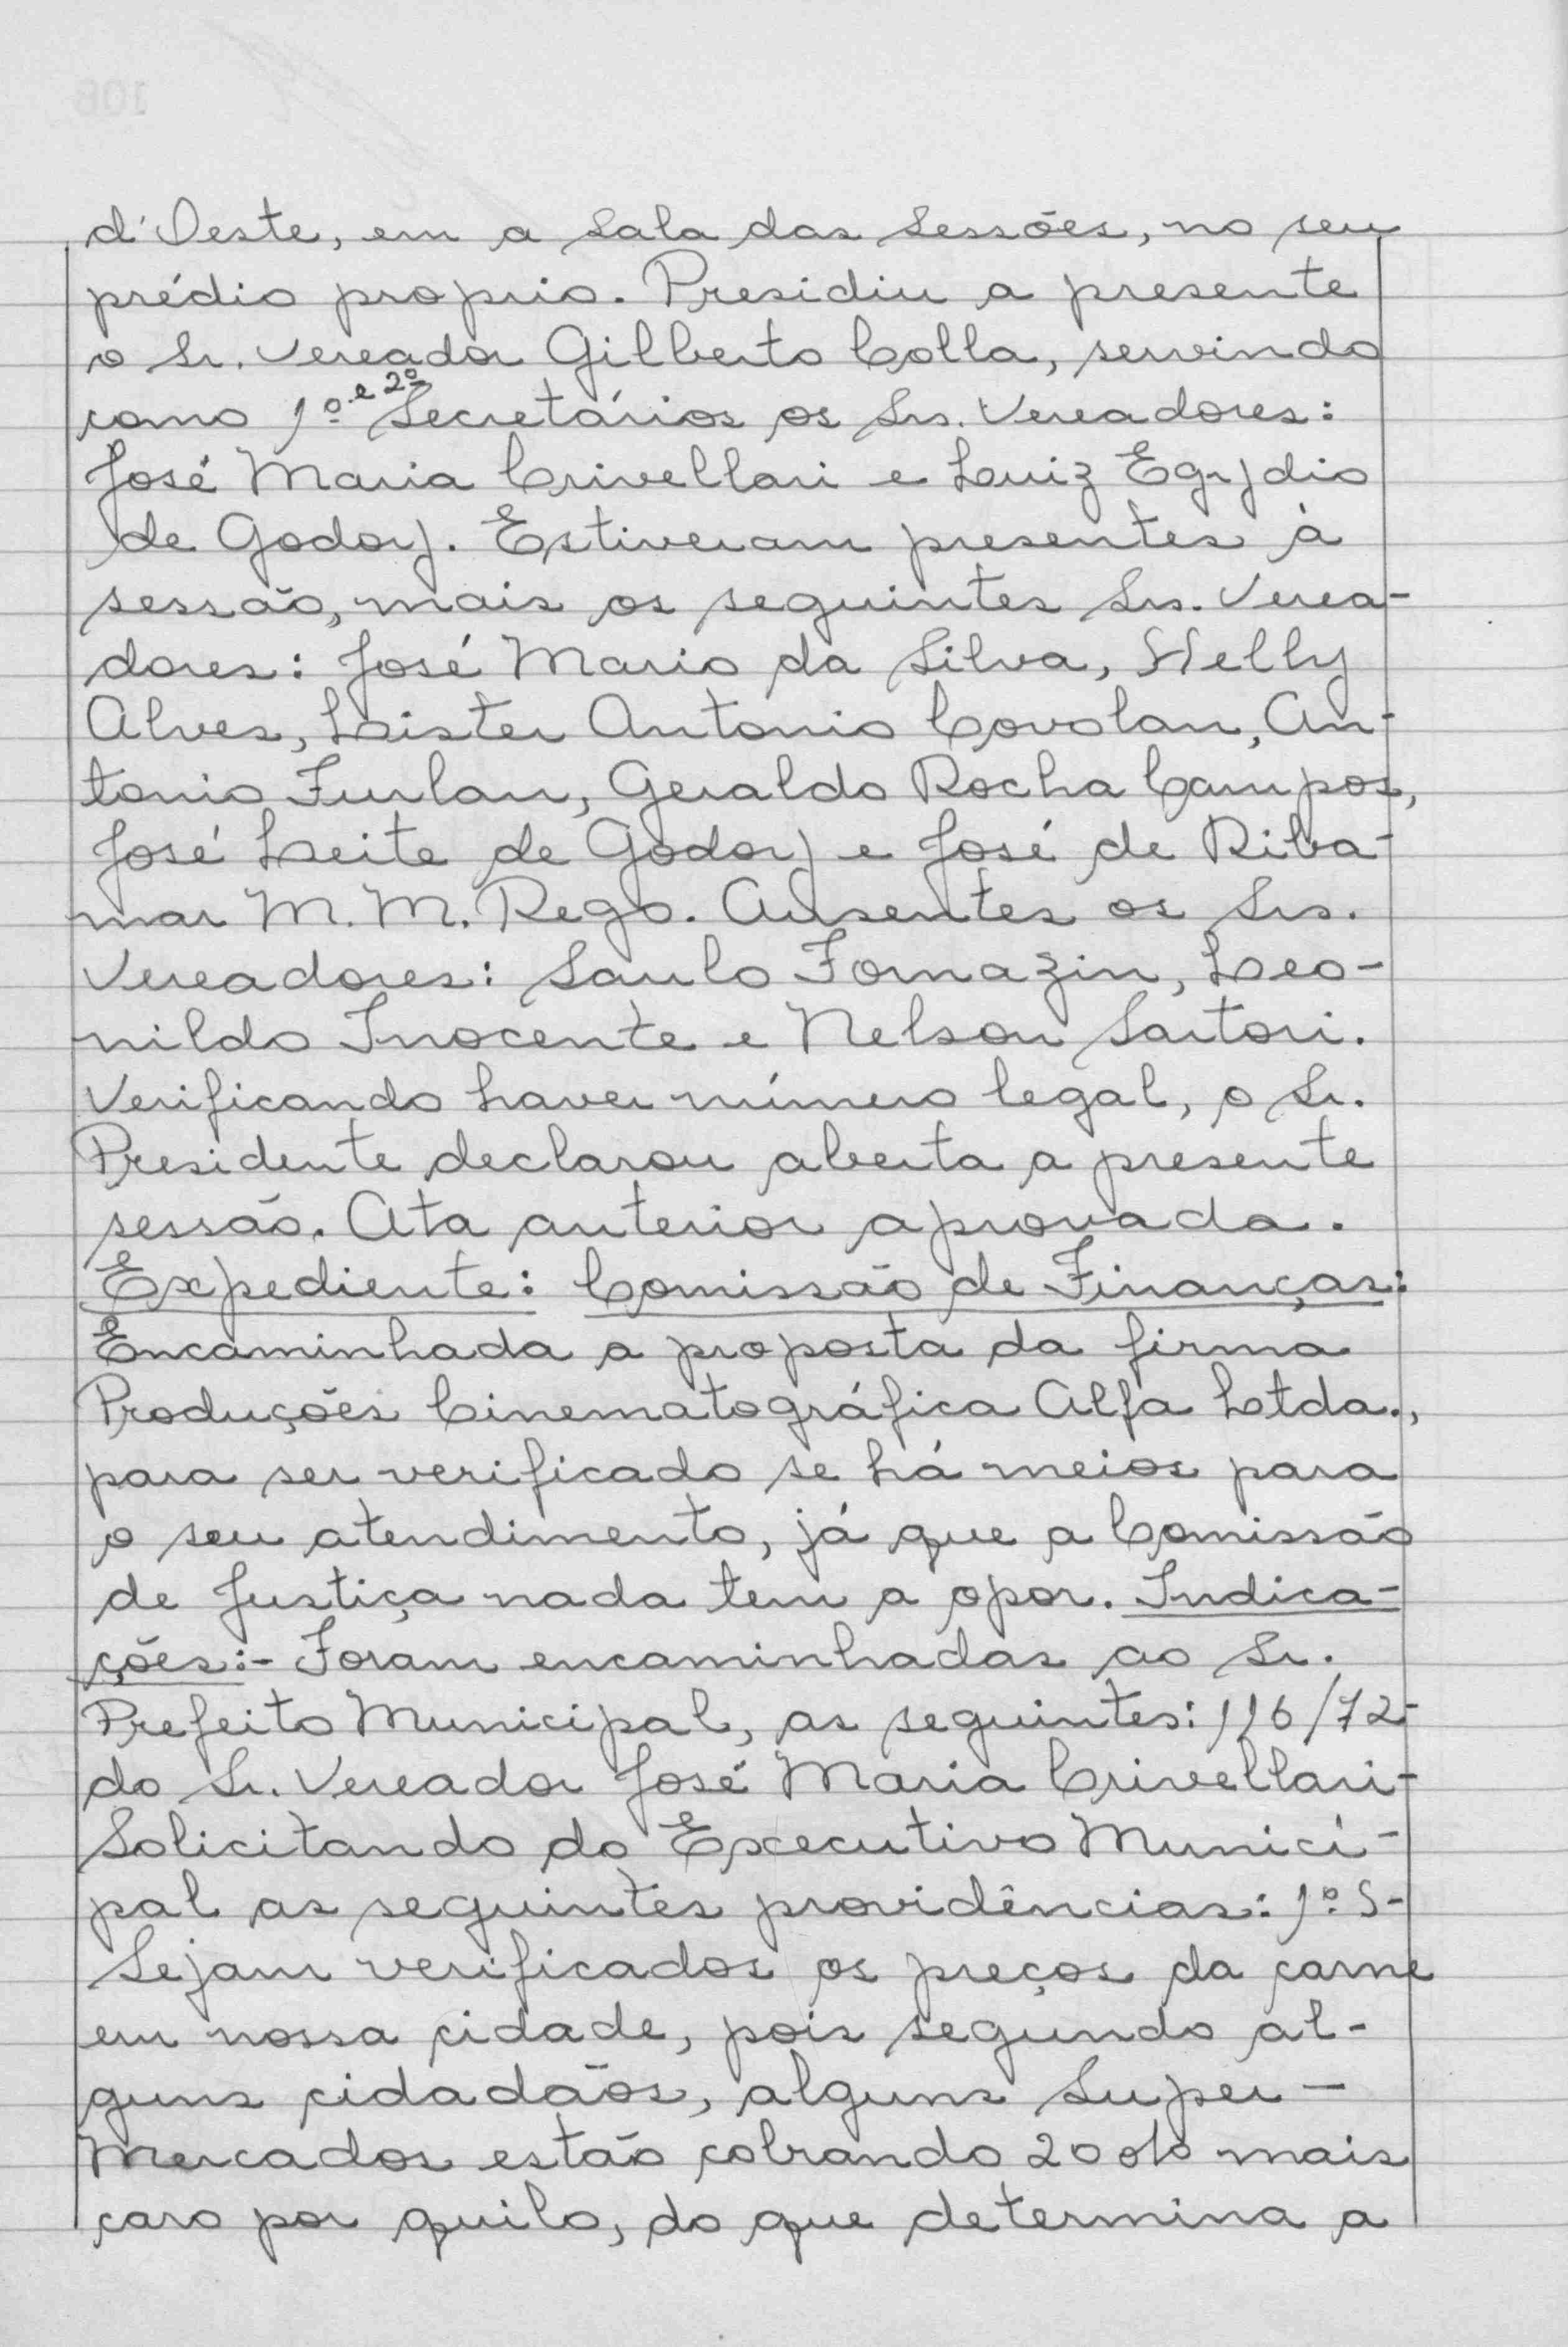 d'Oeste, em a Sala das Sessões, no seu
prédio proprio. Presidiu a presente
o Sr. Vereador Gilberto Colla, servindo
como 1º e 2º Secretários os Srs. Vereadores:
José Maria Crivellari e Luiz Egydio
de Godoy. Estiveram presentes à
sessão, mais os seguintes Srs. Verea-
dores: José Mario da Silva, Helly
Alves, Lister Antonio Covolan, An-
tonio Furlan, Geraldo Rocha Campos,
José Leite de Godoy e José de Riba-
mar M. M. Rego. Ausentes os Srs.
Vereadores: Saulo Fornazin, Leo-
nildo Inocente e Nelson Sartori.
Verificando haver número legal, o Sr.
Presidente declarou aberta a presente
sessão. Ata anterior aprovada.
Expediente: Comissão de Finanças:
Encaminhada a proposta da firma
Produções Cinematográfica Alfa Ltda.,
para ser verificado se há meios para
o seu atendimento, já que a Comissão
de Justiça nada tem a opor. Indica-
ções:- Foram encaminhadas ao Sr.
Prefeito Municipal, as seguintes: 116/72-
do Sr. Vereador José Maria Crivellari-
Solicitando do Executivo Munici-
pal as seguintes providências: 1º S-
Sejam verificados os preços da carne
em nossa cidade, pois segundo al-
guns cidadãos, alguns Super-
Mercados estão cobrando 20% mais
caro por quilo, do que determina a